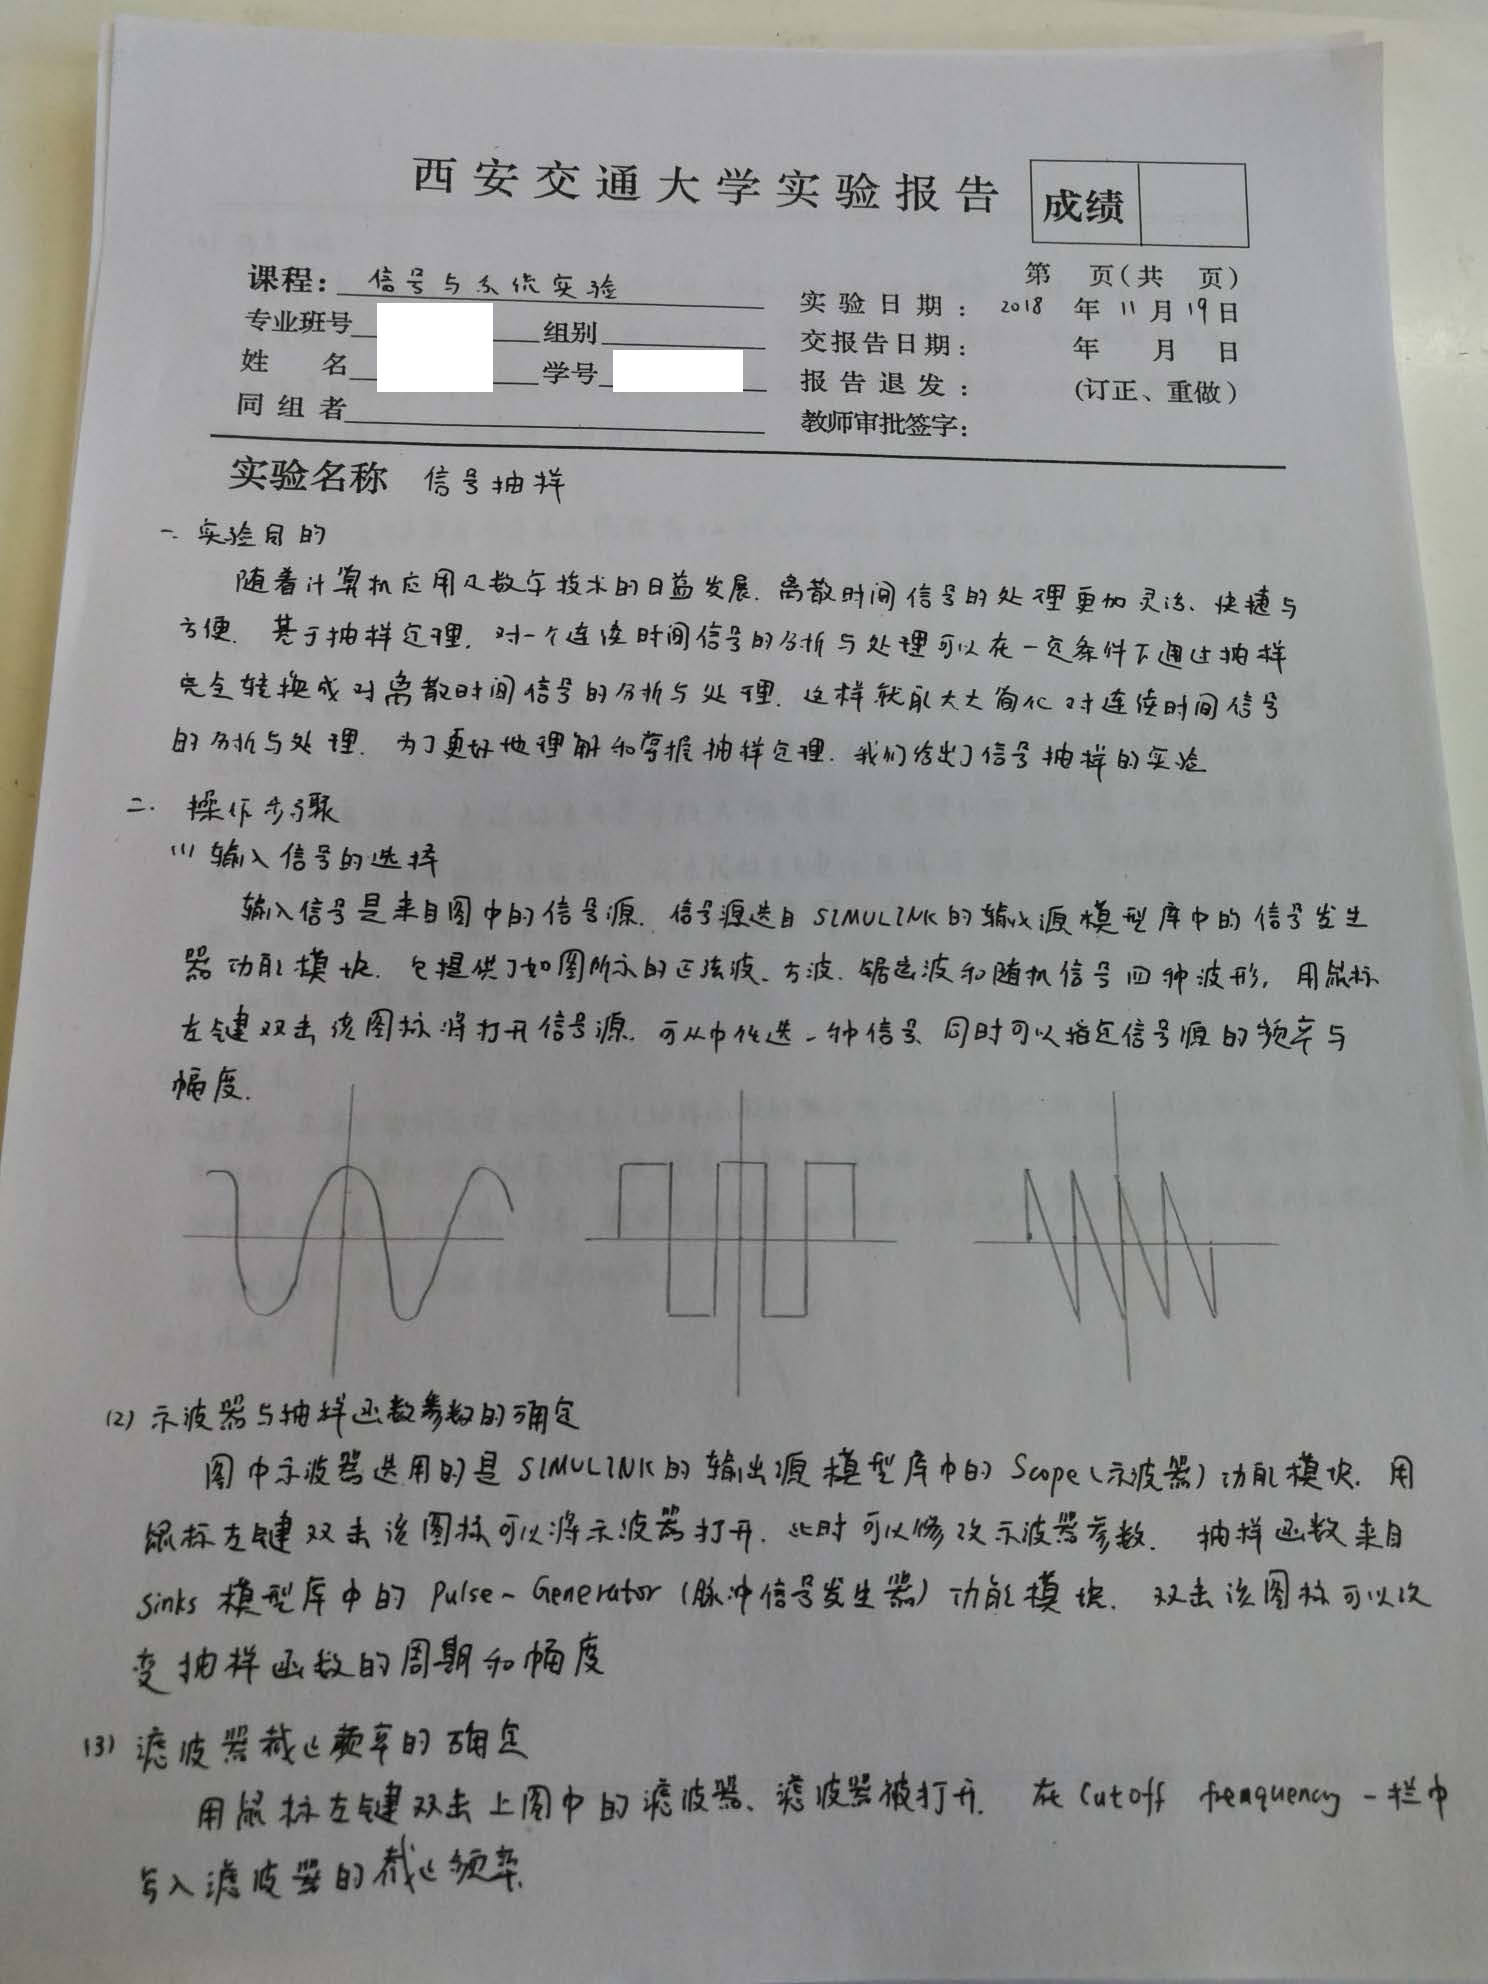 西安交通大学实验报告
成绩
课程：信号与系统实验
第 页（共 页）
专业班号 组别
实验日期：2018年11月19日
姓 名 学号
交报告日期： 年 月 日
同组者
报告退发：（订正、重做）
教师审批签字：
实验名称 信号抽样
一. 实验目的
随着计算机应用及数字技术的日益发展. 离散时间信号的处理更加灵活、快捷与
方便. 基于抽样定理. 对一个连续时间信号的分析与处理可以在一定条件下通过抽样
完全转换成对离散时间信号的分析与处理. 这样就能大大简化对连续时间信号
的分析与处理. 为了更好地理解和掌握抽样定理. 我们给出了信号抽样的实验
二. 操作步骤
(1) 输入信号的选择
输入信号是来自图中的信号源. 信号源选自SIMULINK的输入源模型库中的信号发生
器功能模块. 它提供了如图所示的正弦波、方波. 锯齿波和随机信号四种波形, 用鼠标
左键双击该图标将打开信号源. 可从中任选一种信号、同时可以指定信号源的频率与
幅度.
(2) 示波器与抽样函数参数的确定
图中示波器选用的是SIMULINK的输出源模型库中的Scope(示波器)功能模块. 用
鼠标左键双击该图标可以将示波器打开. 此时可以修改示波器参数. 抽样函数来自
Sinks 模型库中的 Pulse~Generator (脉冲信号发生器) 功能模块. 双击该图标可以改
变抽样函数的周期和幅度
(3) 滤波器截止频率的确定
用鼠标左键双击上图中的滤波器、滤波器被打开. 在Cutoff fremquency一栏中
写入滤波器的截止频率.